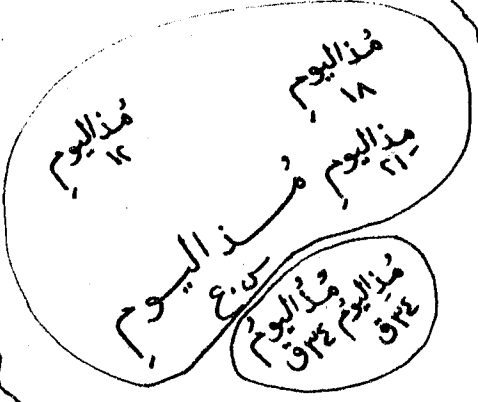 مُذ اليومِ
١٨
مُذ اليومِ
١٢
مِذ اليومِ
٢١
مُـذ اليـومِ
س.ع
مُذِ اليومُ
٣٤ ق
مُذُ اليومُ
٣٤ ق